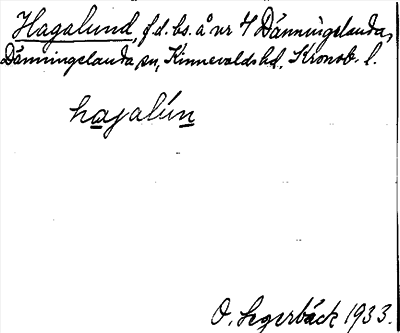 Hagalund, f.d. bs. å nr 4 Dänningelanda,
Dänningelanda sn, Kinnevalds hd. Kronob. l.
hagalún
O. Segerbäck 1933.